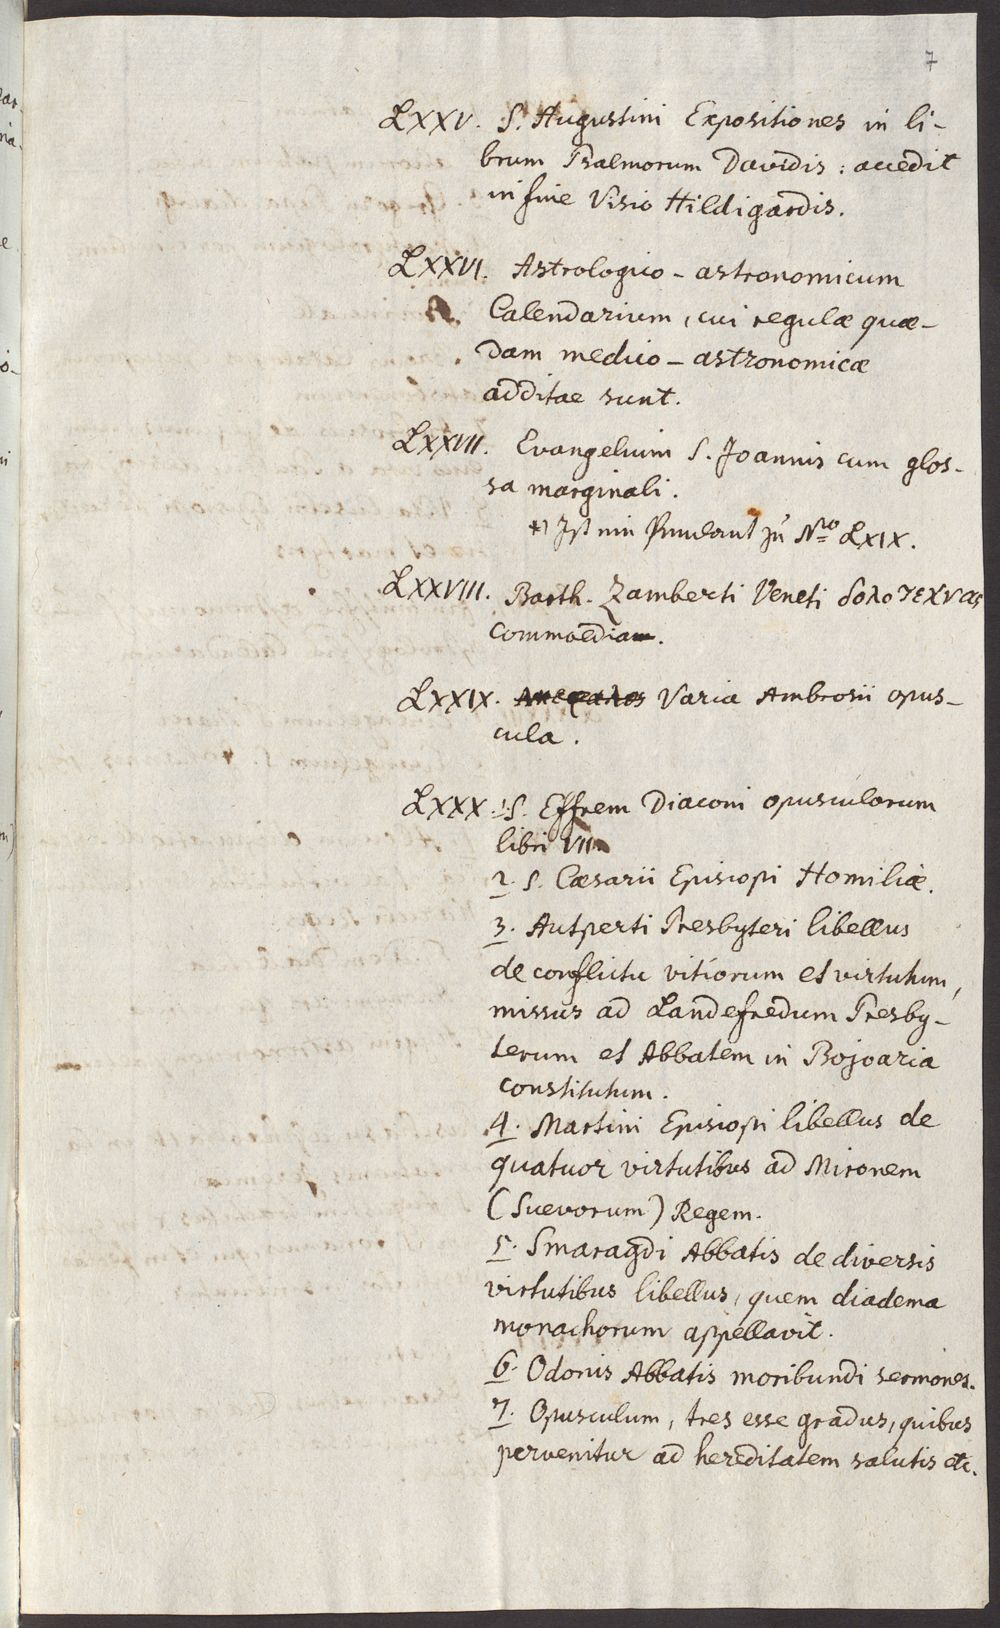 7
LXXV. S. Augustini Expositiones in li-
brum Psalmorum Davidis: accedit
in fine Visio Hildigardis.
LXXVI. Astrologico-astronomicum
Calendarium, cui regulæ quæ-
dam medico-astronomicæ
additae sunt.
LXXVII. Evangelium S. Joannis cum glos-
sa marginali.
*) Ist ein Pendant zu Nro LXIX.
LXXVIII. Barth. Zamberti Veneti δολοτεχνας
commoedia.
LXXIX. Varia Ambrosii opus-
cula.
LXXX. 1. S. Effrem Diaconi opusculorum
libri VII
2. S. Cæsarii Episcopi Homiliæ.
3. Autperti Presbyteri libellus
de conflictu vitiorum et virtutum,
missus ad Landefredum Presby-
terum et Abbatem in Bojoaria
constitutum.
4. Martini Episcopi libellus de
quatuor virtutibus ad Mironem
(Suevorum) Regem.
5. Smaragdi Abbatis de diversis
virtutibus libellus, quem diadema
monachorum appellavit.
6. Odonis Abbatis moribundi sermones.
7. Opusculum, tres esse gradus, quibus
pervenitur ad hereditatem salutis etc.